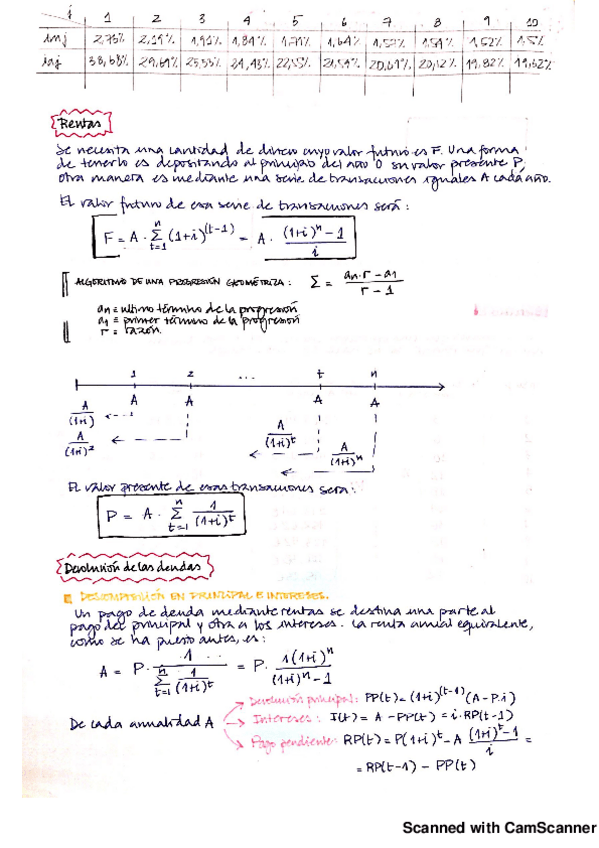 i 1 2 3 4 5 6 7 8 9 10
inj 2,75% 2,19% 1,91% 1,84% 1,71% 1,64% 1,57% 1,54% 1,52% 1,5%
iaj 38,68% 29,69% 25,55% 24,43% 22,55% 21,54% 20,61% 20,12% 19,82% 19,62%
Rentas
Se necesita una cantidad de dinero cuyo valor futuro es F. Una forma
de tenerlo es depositando al principio del año 0 su valor presente P,
otra manera es mediante una serie de transacciones iguales A cada año.
El valor futuro de esa serie de transacciones será:
F = A · Σ_{t=1}^{n} (1+i)^(t-1) = A · ((1+i)^n - 1)/i
ALGORITMO DE UNA PROGRESIÓN GEOMÉTRIZA: Σ = (an·r - a1)/(r - 1)
an = ultimo término de la progresión
a1 = primer término de la progresión
r = razón.
1 2 ... t n
A A A A
A/(1+i)
A/(1+i)^2 A/(1+i)^t A/(1+i)^n
El valor presente de esas transacciones será:
P = A · Σ_{t=1}^{n} 1/(1+i)^t
Devolución de las deudas
DESCOMPOSICIÓN EN PRINCIPAL E INTERESES.
Un pago de deuda mediante rentas se destina una parte al
pago del principal y otra a los intereses. La renta anual equivalente,
como se ha puesto antes, es:
A = P · 1/(Σ_{t=1}^{n} 1/(1+i)^t) = P · i(1+i)^n/((1+i)^n - 1)
Devolución principal: PP(t) = (1+i)^(t-1) (A - P·i)
De cada anualidad A Intereses: I(t) = A - PP(t) = i·RP(t-1)
Pago pendiente: RP(t) = P(1+i)^t - A ((1+i)^t - 1)/i =
= RP(t-1) - PP(t)
Scanned with CamScanner